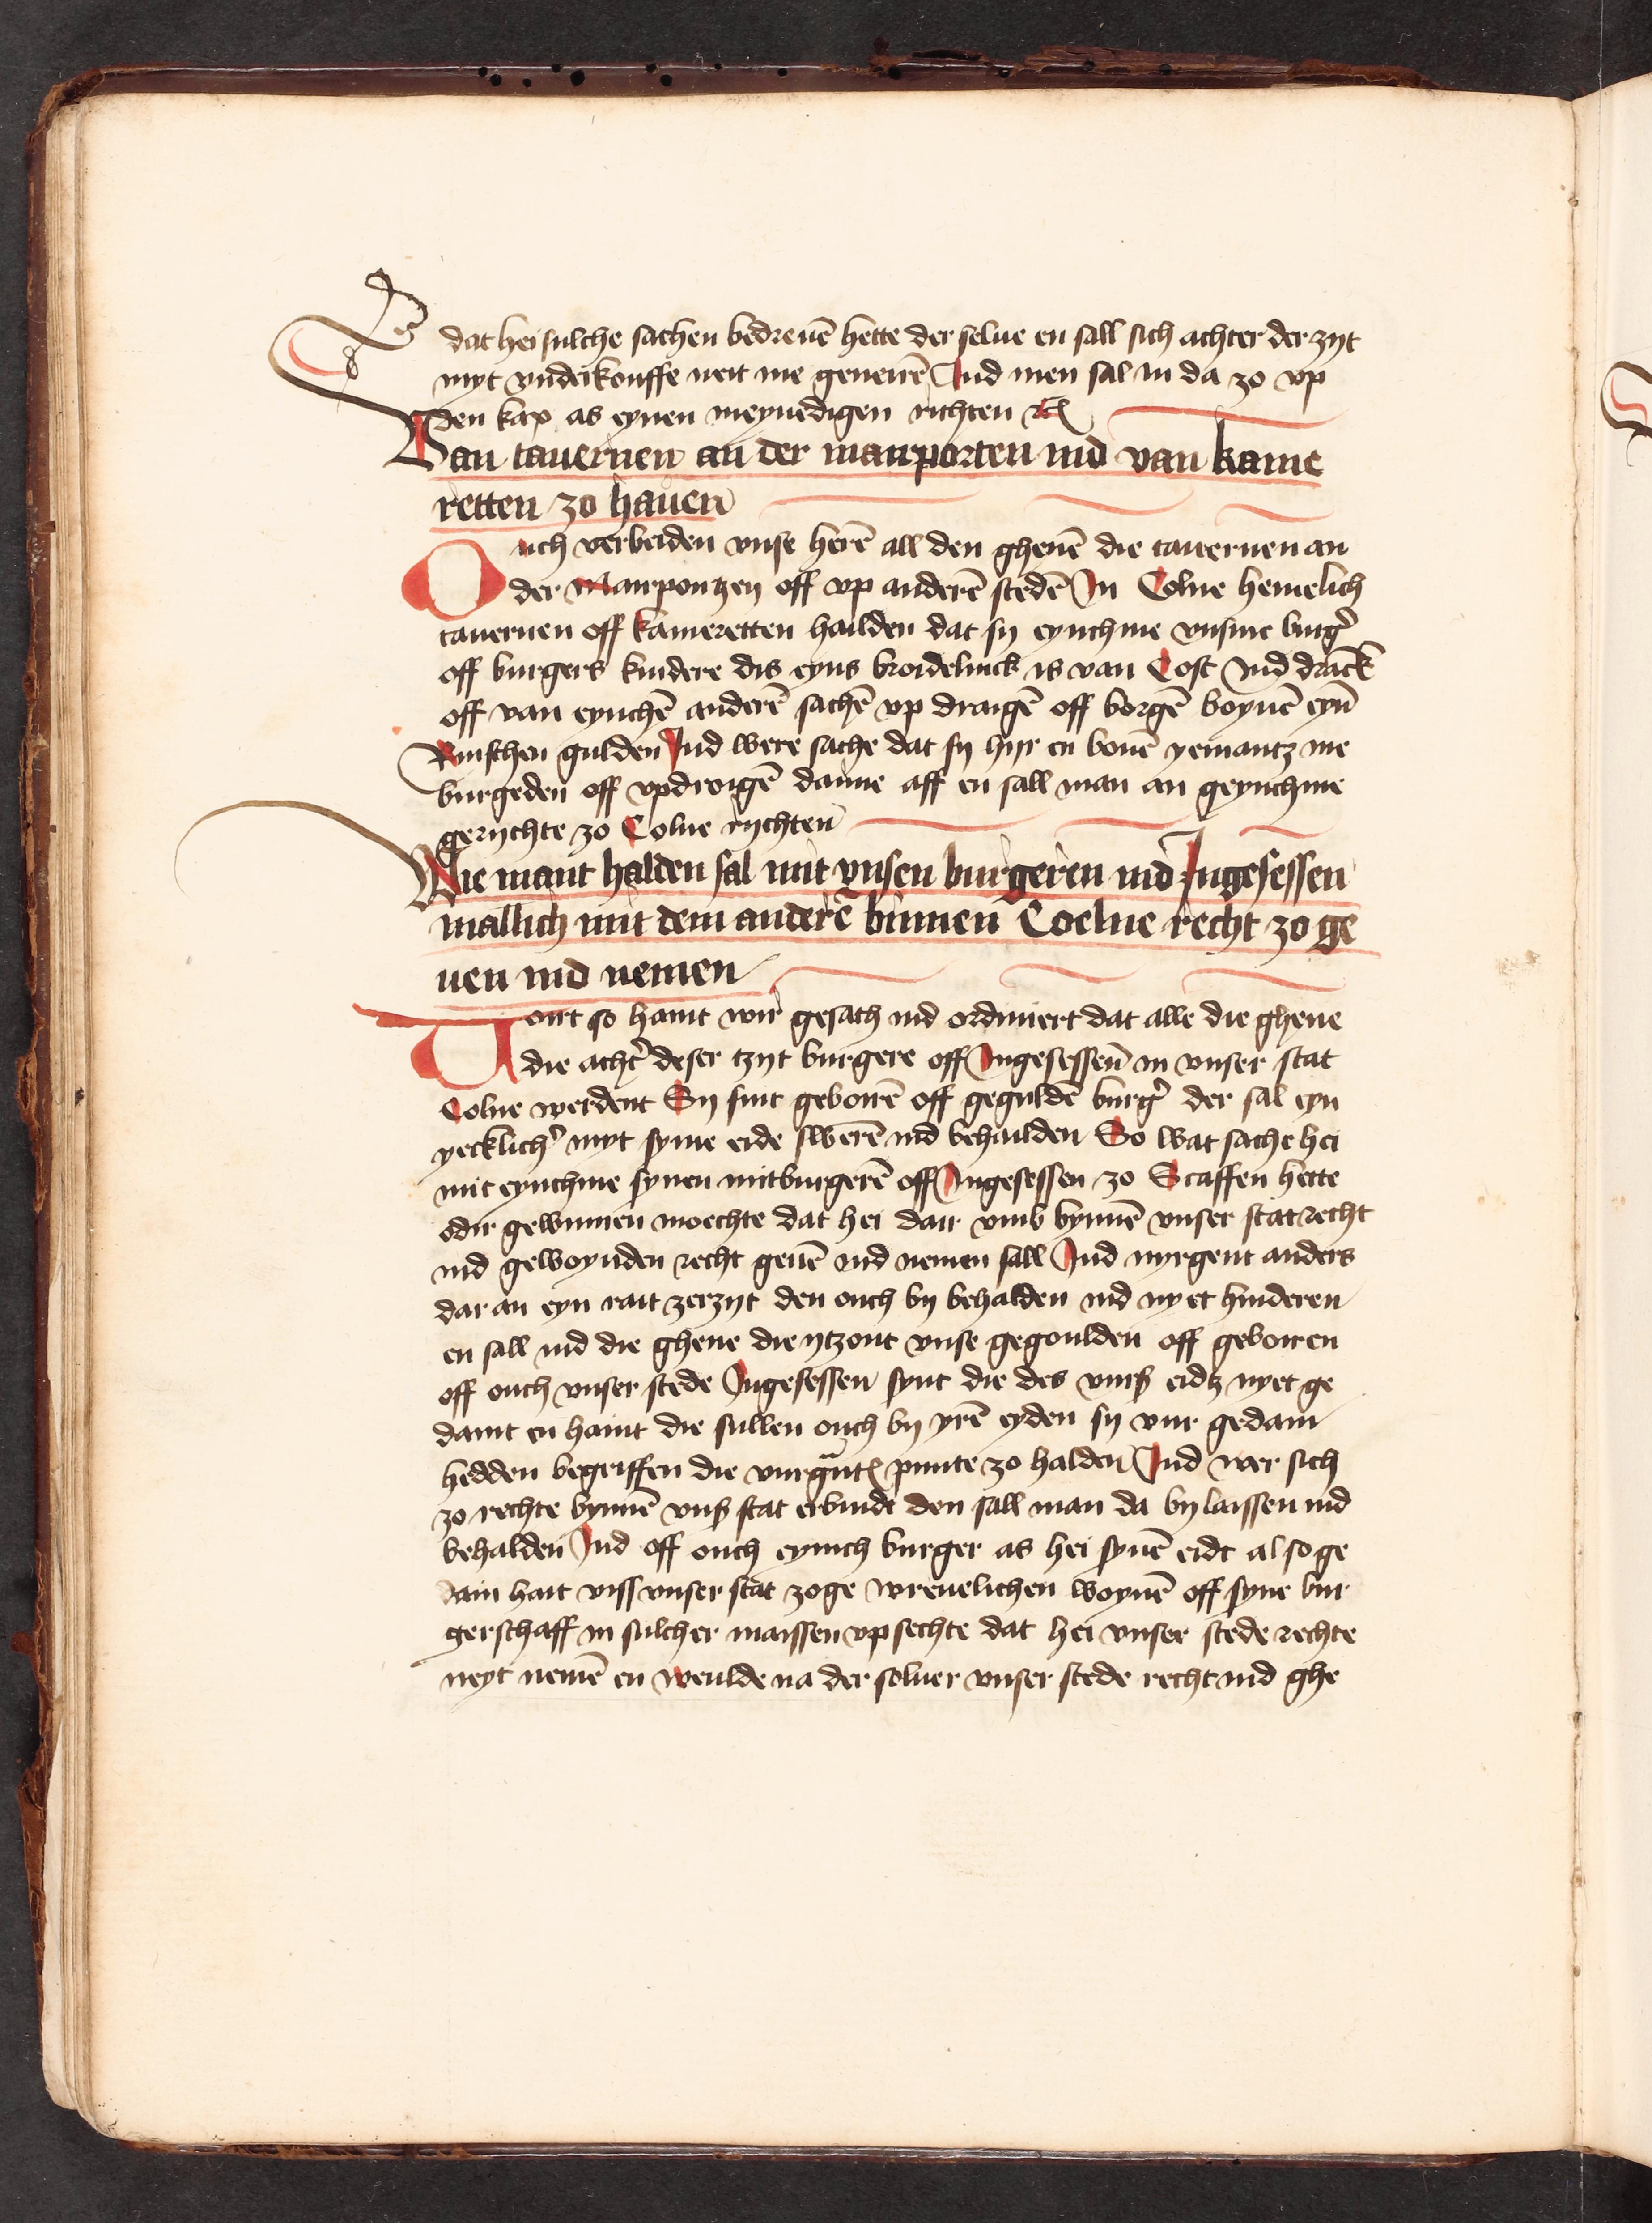 dat hei sulche sachen bedreuē hette der selue en sall sich achter der zyt
myt vnderkouffe neit me generē Ind men sal in da zo vp
den kax as eynen meynedigen richten ꝛc
Van tauernen an der marporten ind van kame
retten zo hauen
Ouch verbeiden vnse herē all den ghenē die tauernen an
der Marportzen off vp anderē stedē In Colne hemelich
tauernen off kameretten hailden dat sy eynchme vnsme burg̉
off burgers kindere dis eyns broidelinck is van Cost Ind dranck
off van eynchē anderē sachē vp draigē off borgē boyuē eyn̄
Rinschen gulden Ind were sache dat sy hyr en bouē yemantz me
burgeden off vpdroigē danne aff en sall man an geynchme
gerychte zo Colne rychten
Wie mant halden sal mit vnsen burgeren ind Ingesessen
mallich mit dem anderē binnen Coelne recht zo ge
uen ind nemen
Vort so haint wir gesatzh ind ordiniert dat alle die ghene
die acht̉ deser tzyt burgere off Ingesessen̄ in vnser stat
Colne werdent Sy sint geborē off geguldē burg̉ der sal eyn
yecklich̉ myt syme eide swerē ind behailden So wat sache hei
mit eynchme synen mitburgerē off Ingesessen zo Scaffen hette
odir gewinnen moechte dat hei dair vmb bynnē vnser stat recht
ind gewoynden recht geuē ind nemen sall Ind nyrgent anders
dar an eyn rait zerzyt den ouch by behalden ind nyet hinderen
en sall ind die ghene die ytzont vnse gegoulden off geboren
off ouch vnser stede Ingesessen synt die des vurß eidtz nyet ge
damt en haint die sullen ouch by yrē eyden sy vur gedain
hedden begriffen die vurgūt͛ punte zo halden Ind wer sich
zo rechte bynnē vnß stat erbudt den sall man da by laissen ind
behalden Ind off ouch eynich burger as hei synē eidt al so ge
dain hait viss vnser stat zoge wreuelichen woynē off syne bur
gerschaff in sulcher maissen vpsechte dat hei vnser stede rechte
neyt nemē en weulde na der seluer vnser stede recht ind ghe